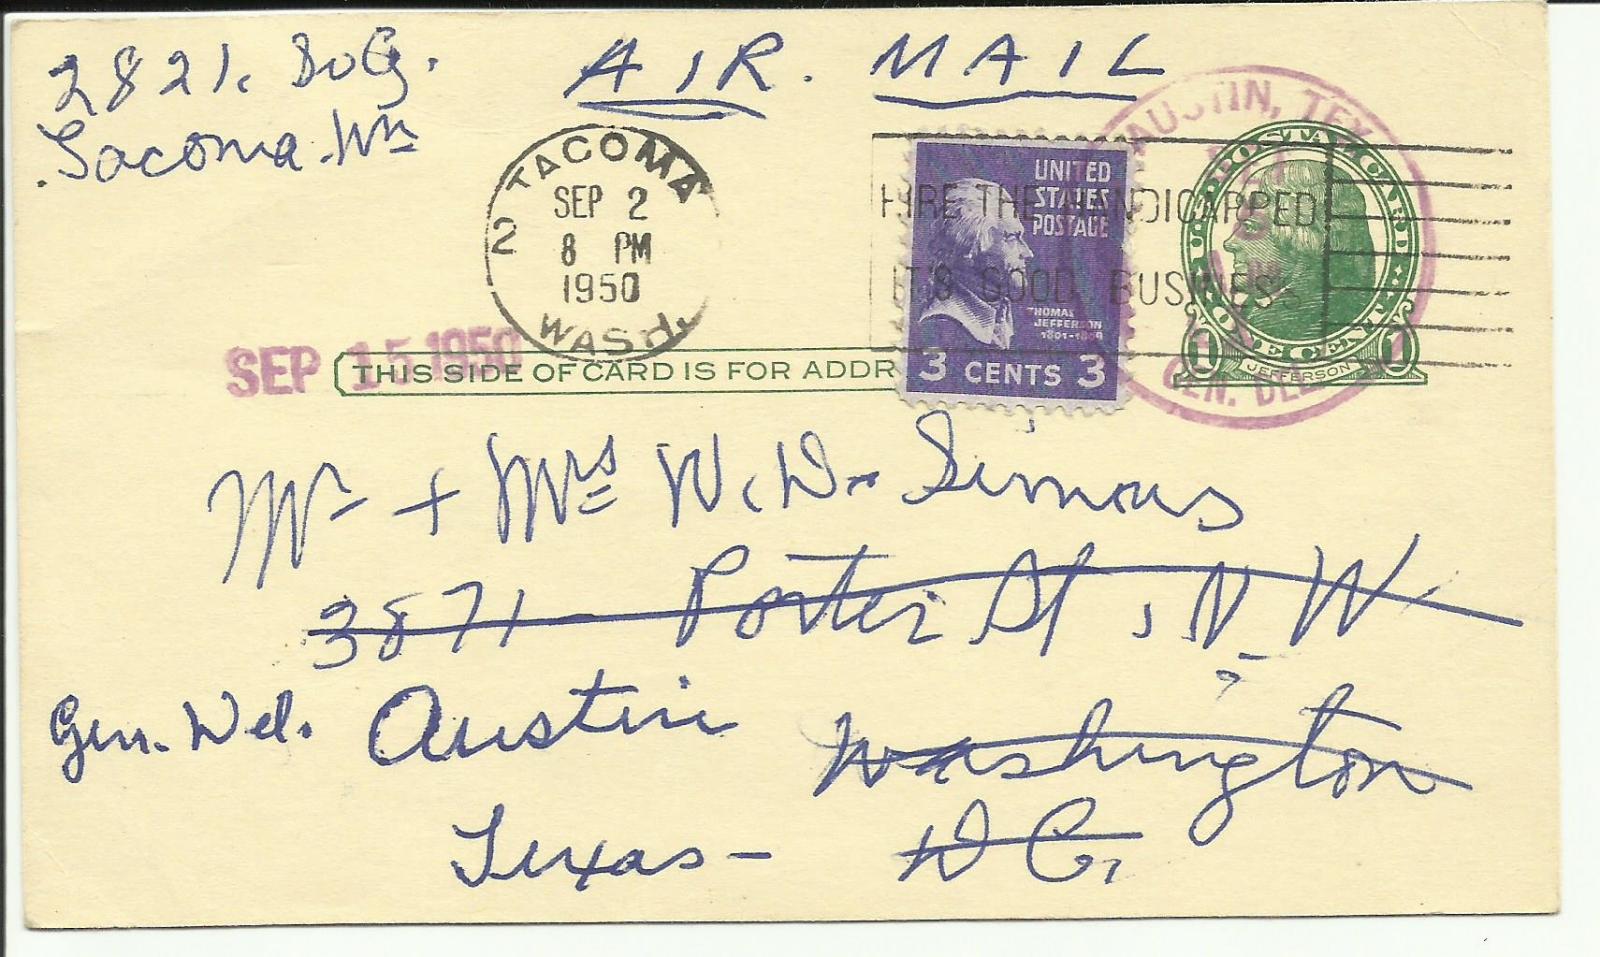 2821. So G.
Tacoma. Wn
AIR. MAIL
TACOMA
2
SEP 2
8 PM
1950
WASH.
HIRE THE HANDICAPPED
IT'S GOOD BUSINESS
UNITED
STATES
POSTAGE
THOMAS
JEFFERSON
1801-1809
3 CENTS 3
AUSTIN, TEX
GEN. DEL
U.S. POSTAL CARD
ONE CENT
1 JEFFERSON 1
SEP 15 1950
THIS SIDE OF CARD IS FOR ADDR
Mr + Mrs W. D. Simons
3871 - Porter St, N.W.
Gen. Del. Austin Washington
Texas - D C,